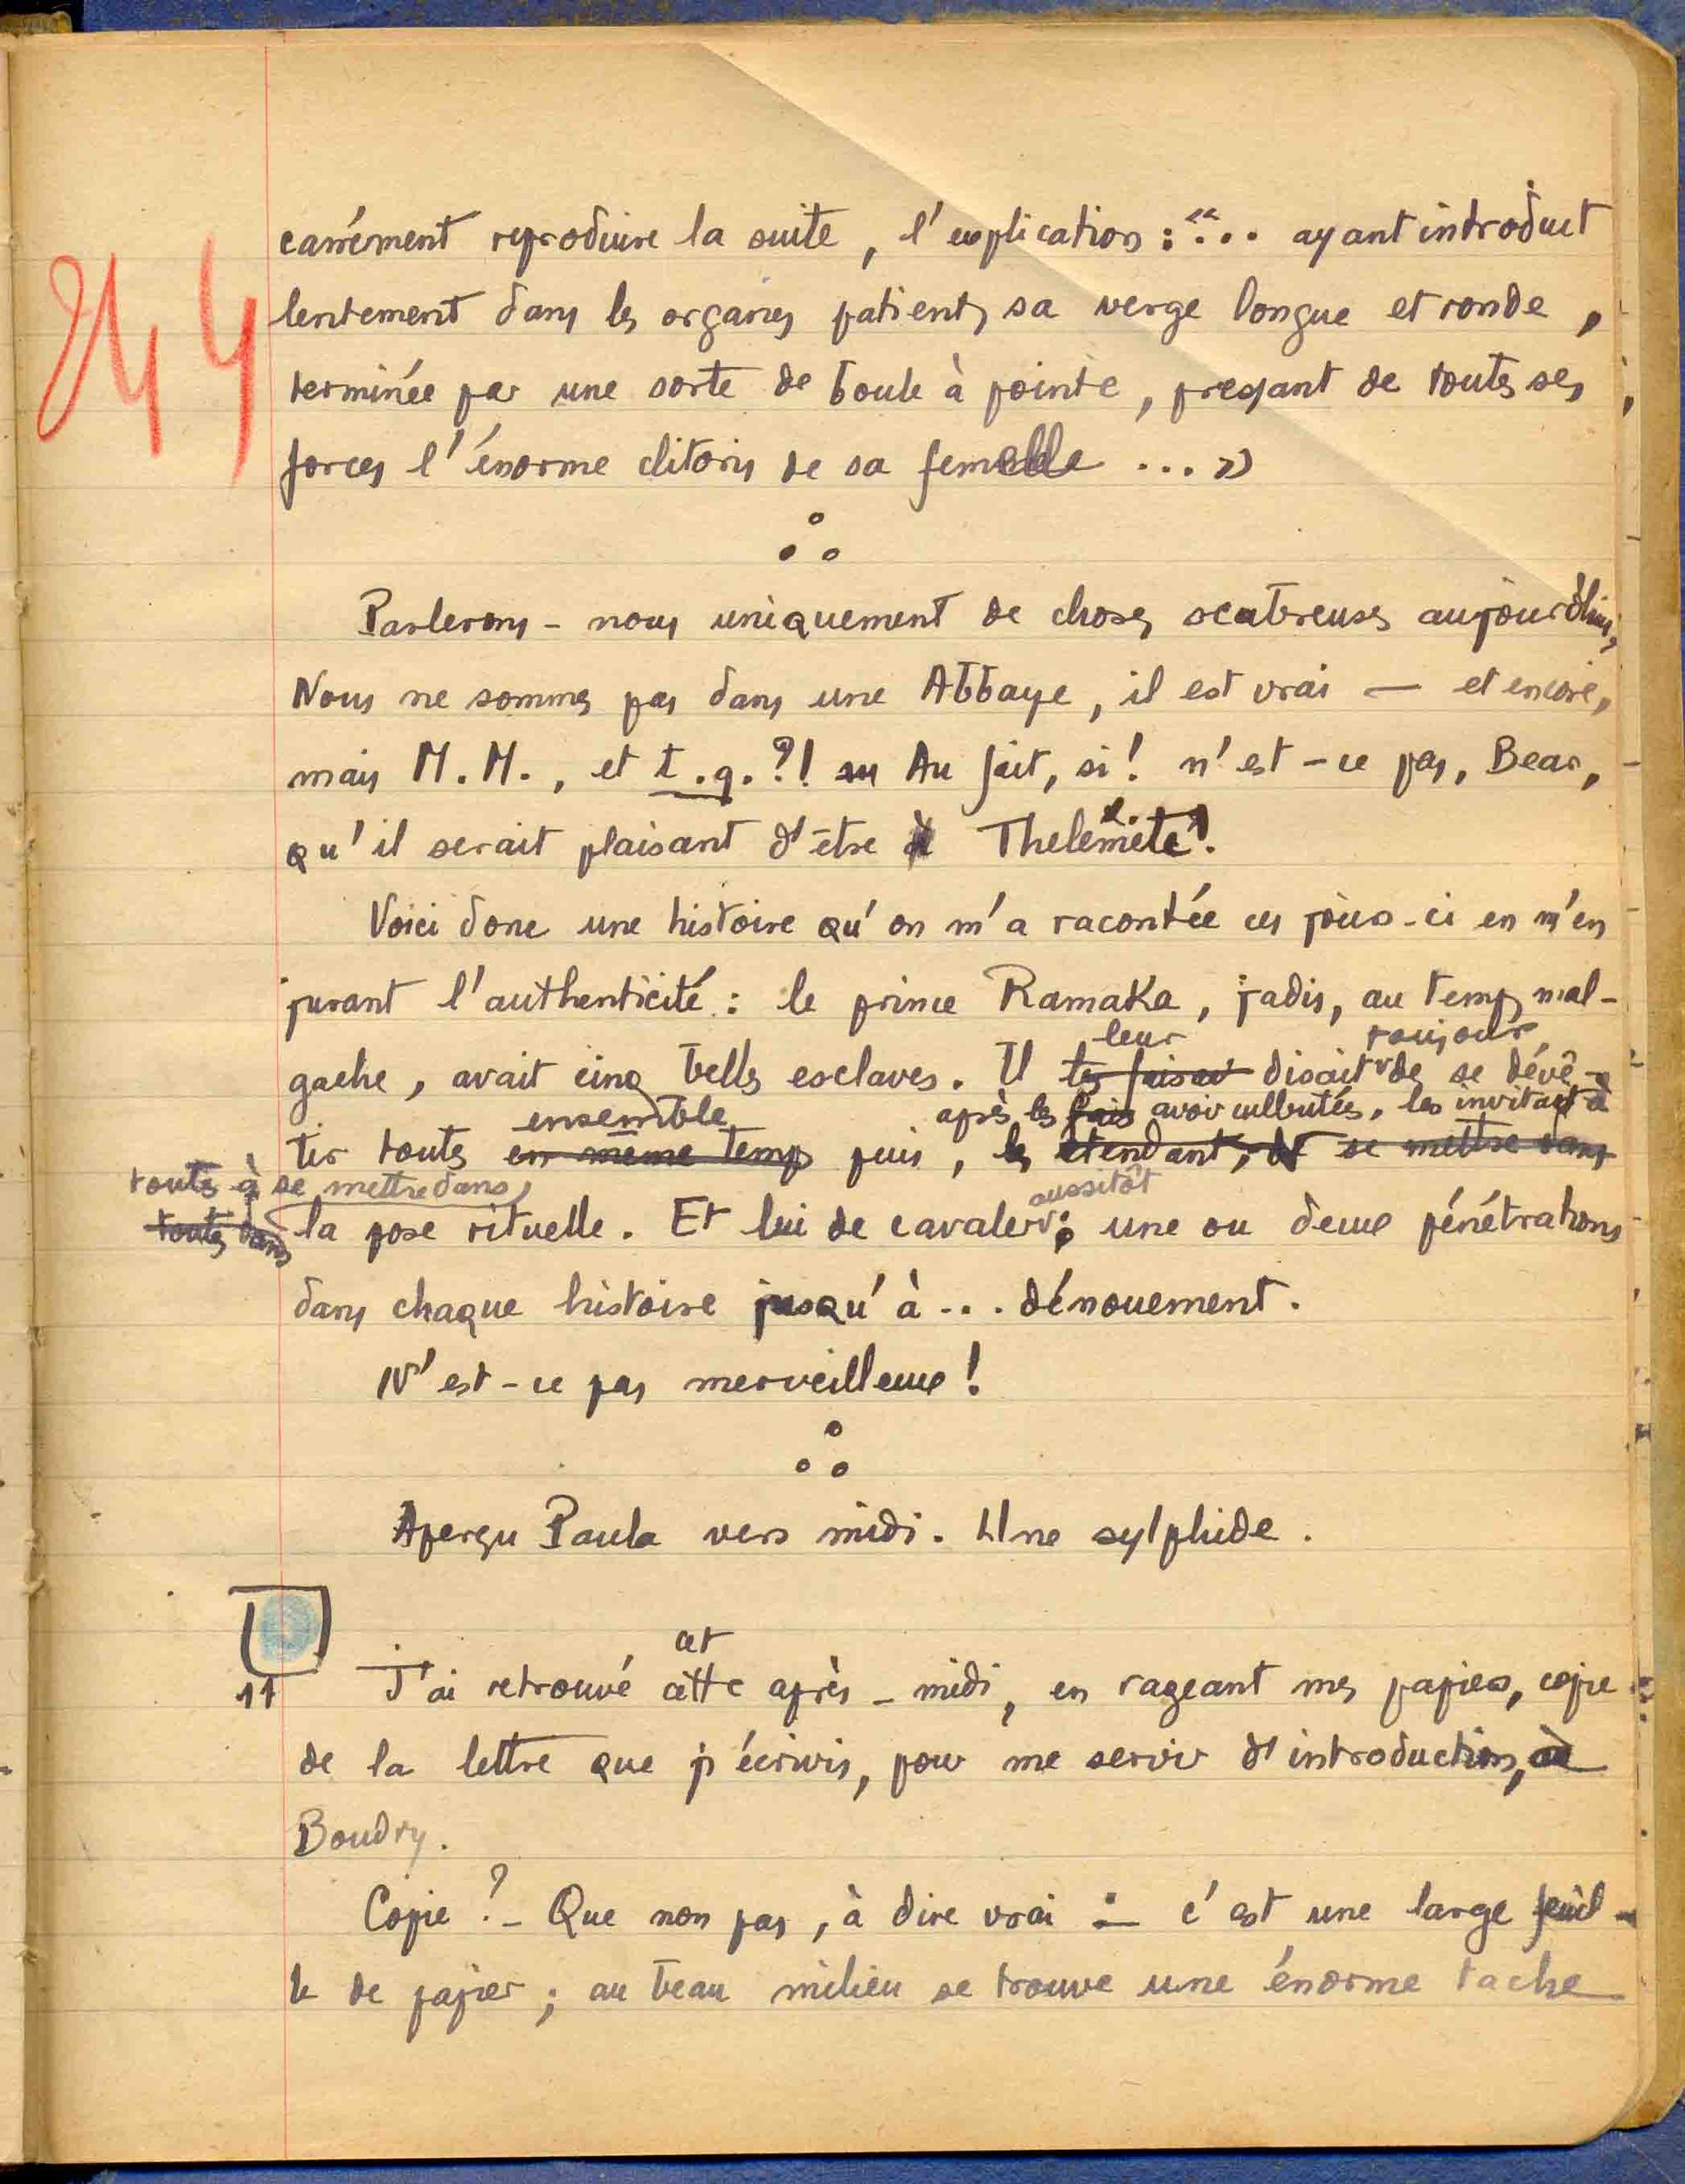 244
carrément reproduire la suite, l'explication : "... ayant introduit
lentement dans les organes patients sa verge longue et ronde,
terminée par une sorte de boule à pointe, pressant de toutes ses
forces l'énorme clitoris de sa femelle ... »
Parlerons-nous uniquement de choses scabreuses aujourd'hui,
Nous ne sommes pas dans une Abbaye, il est vrai — et encore,
mais M. M., et t.q. ?! Au fait, si ! n'est-ce pas, Bear,
qu'il serait plaisant d'être Thelemite !
Voici donc une histoire qu'on m'a racontée ces jours-ci en m'en
jurant l'authenticité : le prince RamaKa, jadis, au temps mal-
leur toujours
gache, avait cinq belles esclaves. Il les faisait disait de se dévê-
ensemble après les fais avoir culbutées, les invitant à
tir toutes en même temps puis, les étendant, de se mettre dans
toutes à se mettre dans aussitôt
toutes dans la pose rituelle. Et lui de cavaler ; une ou deux pénétrations
dans chaque histoire jusqu'à ... dénouement.
N'est-ce pas merveilleux !
Aperçu Paula vers midi. Une sylphide.
cet
11 J'ai retrouvé cette après-midi, en rageant mes papiers, copie
de la lettre que j'écrivis, pour me servir d'introduction, à
Boudry.
Copie ? - Que non pas, à dire vrai : - c'est une large feuil-
le de papier ; au beau milieu se trouve une énorme tache